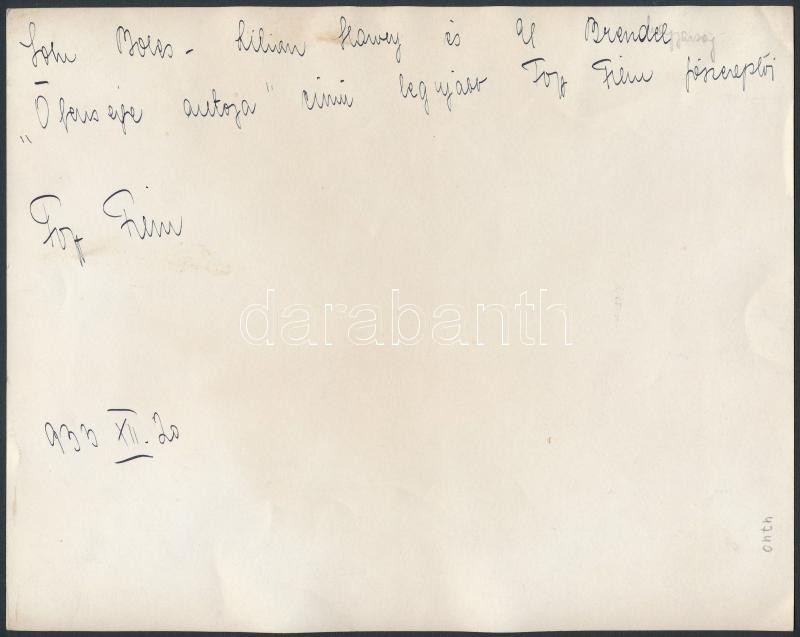 John Boles - Lilian Harvey és El Brendel
„Ő fensége autója" című legujabb Fox Film főszereplői
Fox Film
darabanth
933 XII. 20